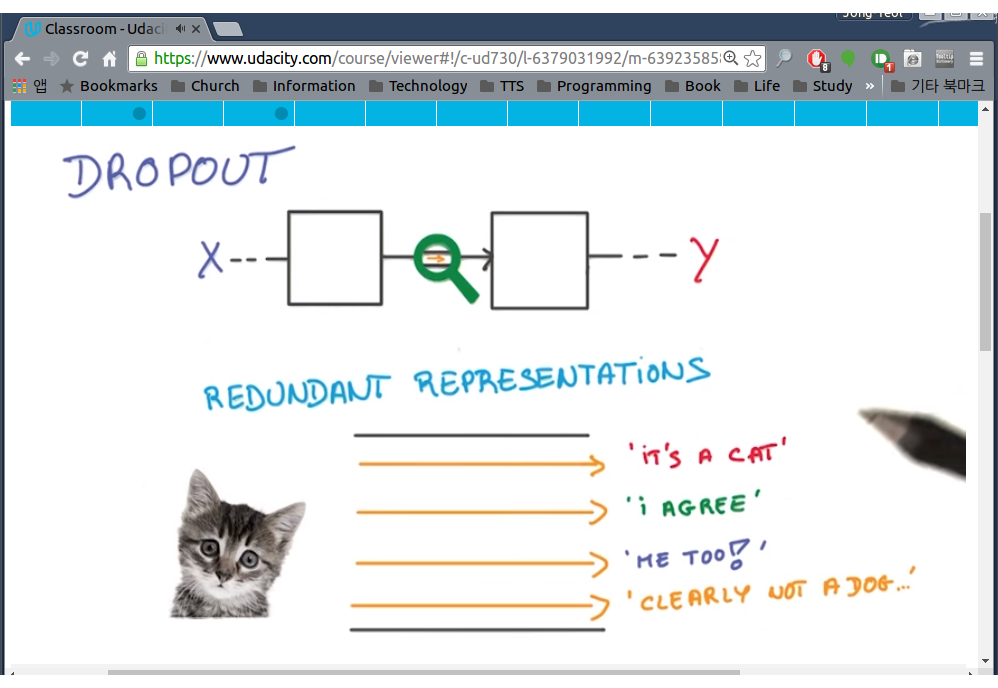 Jong Yeol
Classroom - Udaci
https://www.udacity.com/course/viewer#!/c-ud730/l-6379031992/m-63923585
8
1
앱 Bookmarks Church Information Technology TTS Programming Book Life Study » 기타 북마크
DROPOUT
X
Y
REDUNDANT REPRESENTATIONS
'iT'S A CAT'
'i AGREE'
'ME TOO!'
'CLEARLY NOT A DOG...'